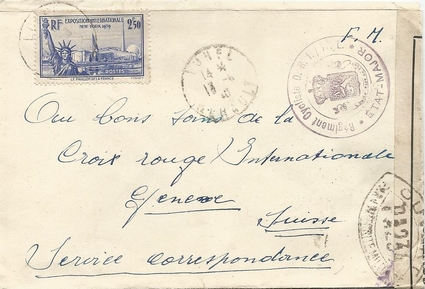 EXPOSITION INTERNATIONALE
NEW YORK 1939
RF
2F50
POSTES
LE PAVILLON DE LA FRANCE
F. M.
Régiment Cycliste
ETAT-MAJOR
Aux bons soins de la
Croix rouge Internationale
Geneve
Suisse
Service correspondance